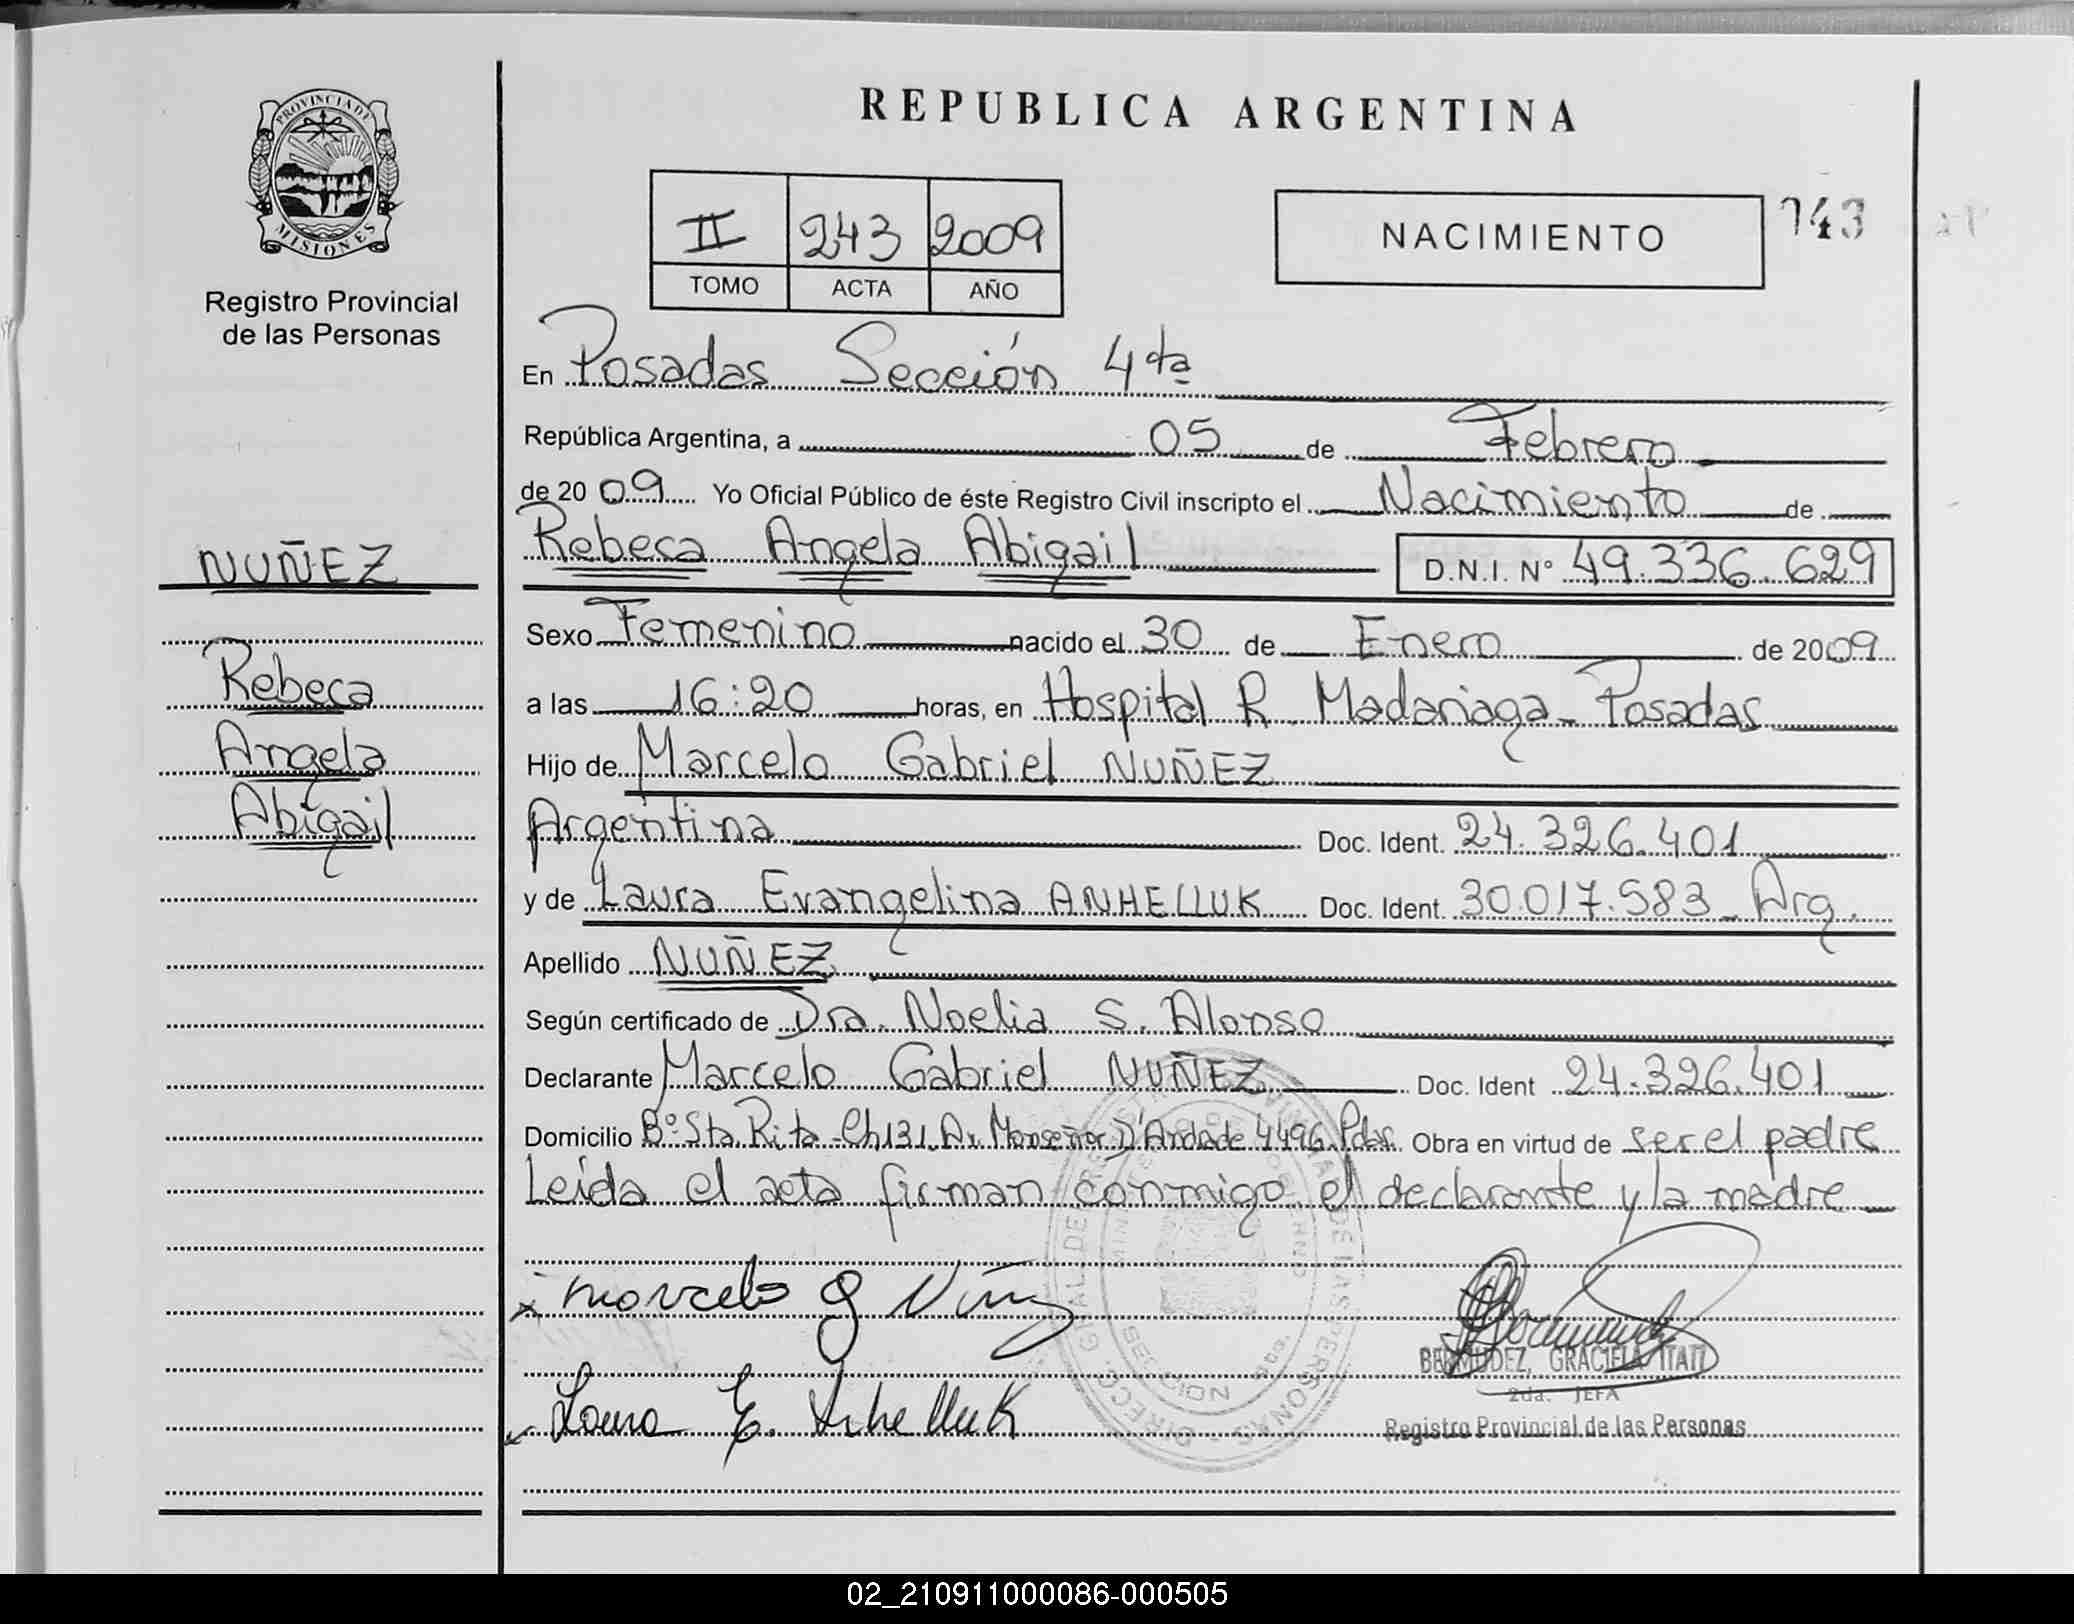 PROVINCIA DE
MISIONES
Registro Provincial
de las Personas
NUÑEZ
Rebeca
Angela
Abigail
REPUBLICA ARGENTINA
II 243 2009
TOMO ACTA AÑO
NACIMIENTO
743
En Posadas Sección 4ta
República Argentina, a 05 de Febrero
de 20 09 Yo Oficial Público de éste Registro Civil inscripto el Nacimiento de
Rebeca Angela Abigail D.N.I. N° 49.336.629
Sexo Femenino nacido el 30 de Enero de 2009
a las 16:20 horas, en Hospital R. Madariaga - Posadas
Hijo de Marcelo Gabriel NUÑEZ
Argentina Doc. Ident. 24.326.401
y de Laura Evangelina ANHELLUK Doc. Ident. 30.017.583 - Arg.
Apellido NUÑEZ
Según certificado de Dra. Noelia S. Alonso
Declarante Marcelo Gabriel NUÑEZ Doc. Ident 24.326.401
Domicilio B° Sta Rita - Ch 131. Av. Monseñor D'Andade 4496. Pdas. Obra en virtud de ser el padre
Leida el acta firman conmigo el declarante y la madre
x Marcelo G Nuñez
Laura E. Anhelluk
BERMUDEZ, GRACIELA ITATI
2da. JEFA
Registro Provincial de las Personas
02_210911000086-000505